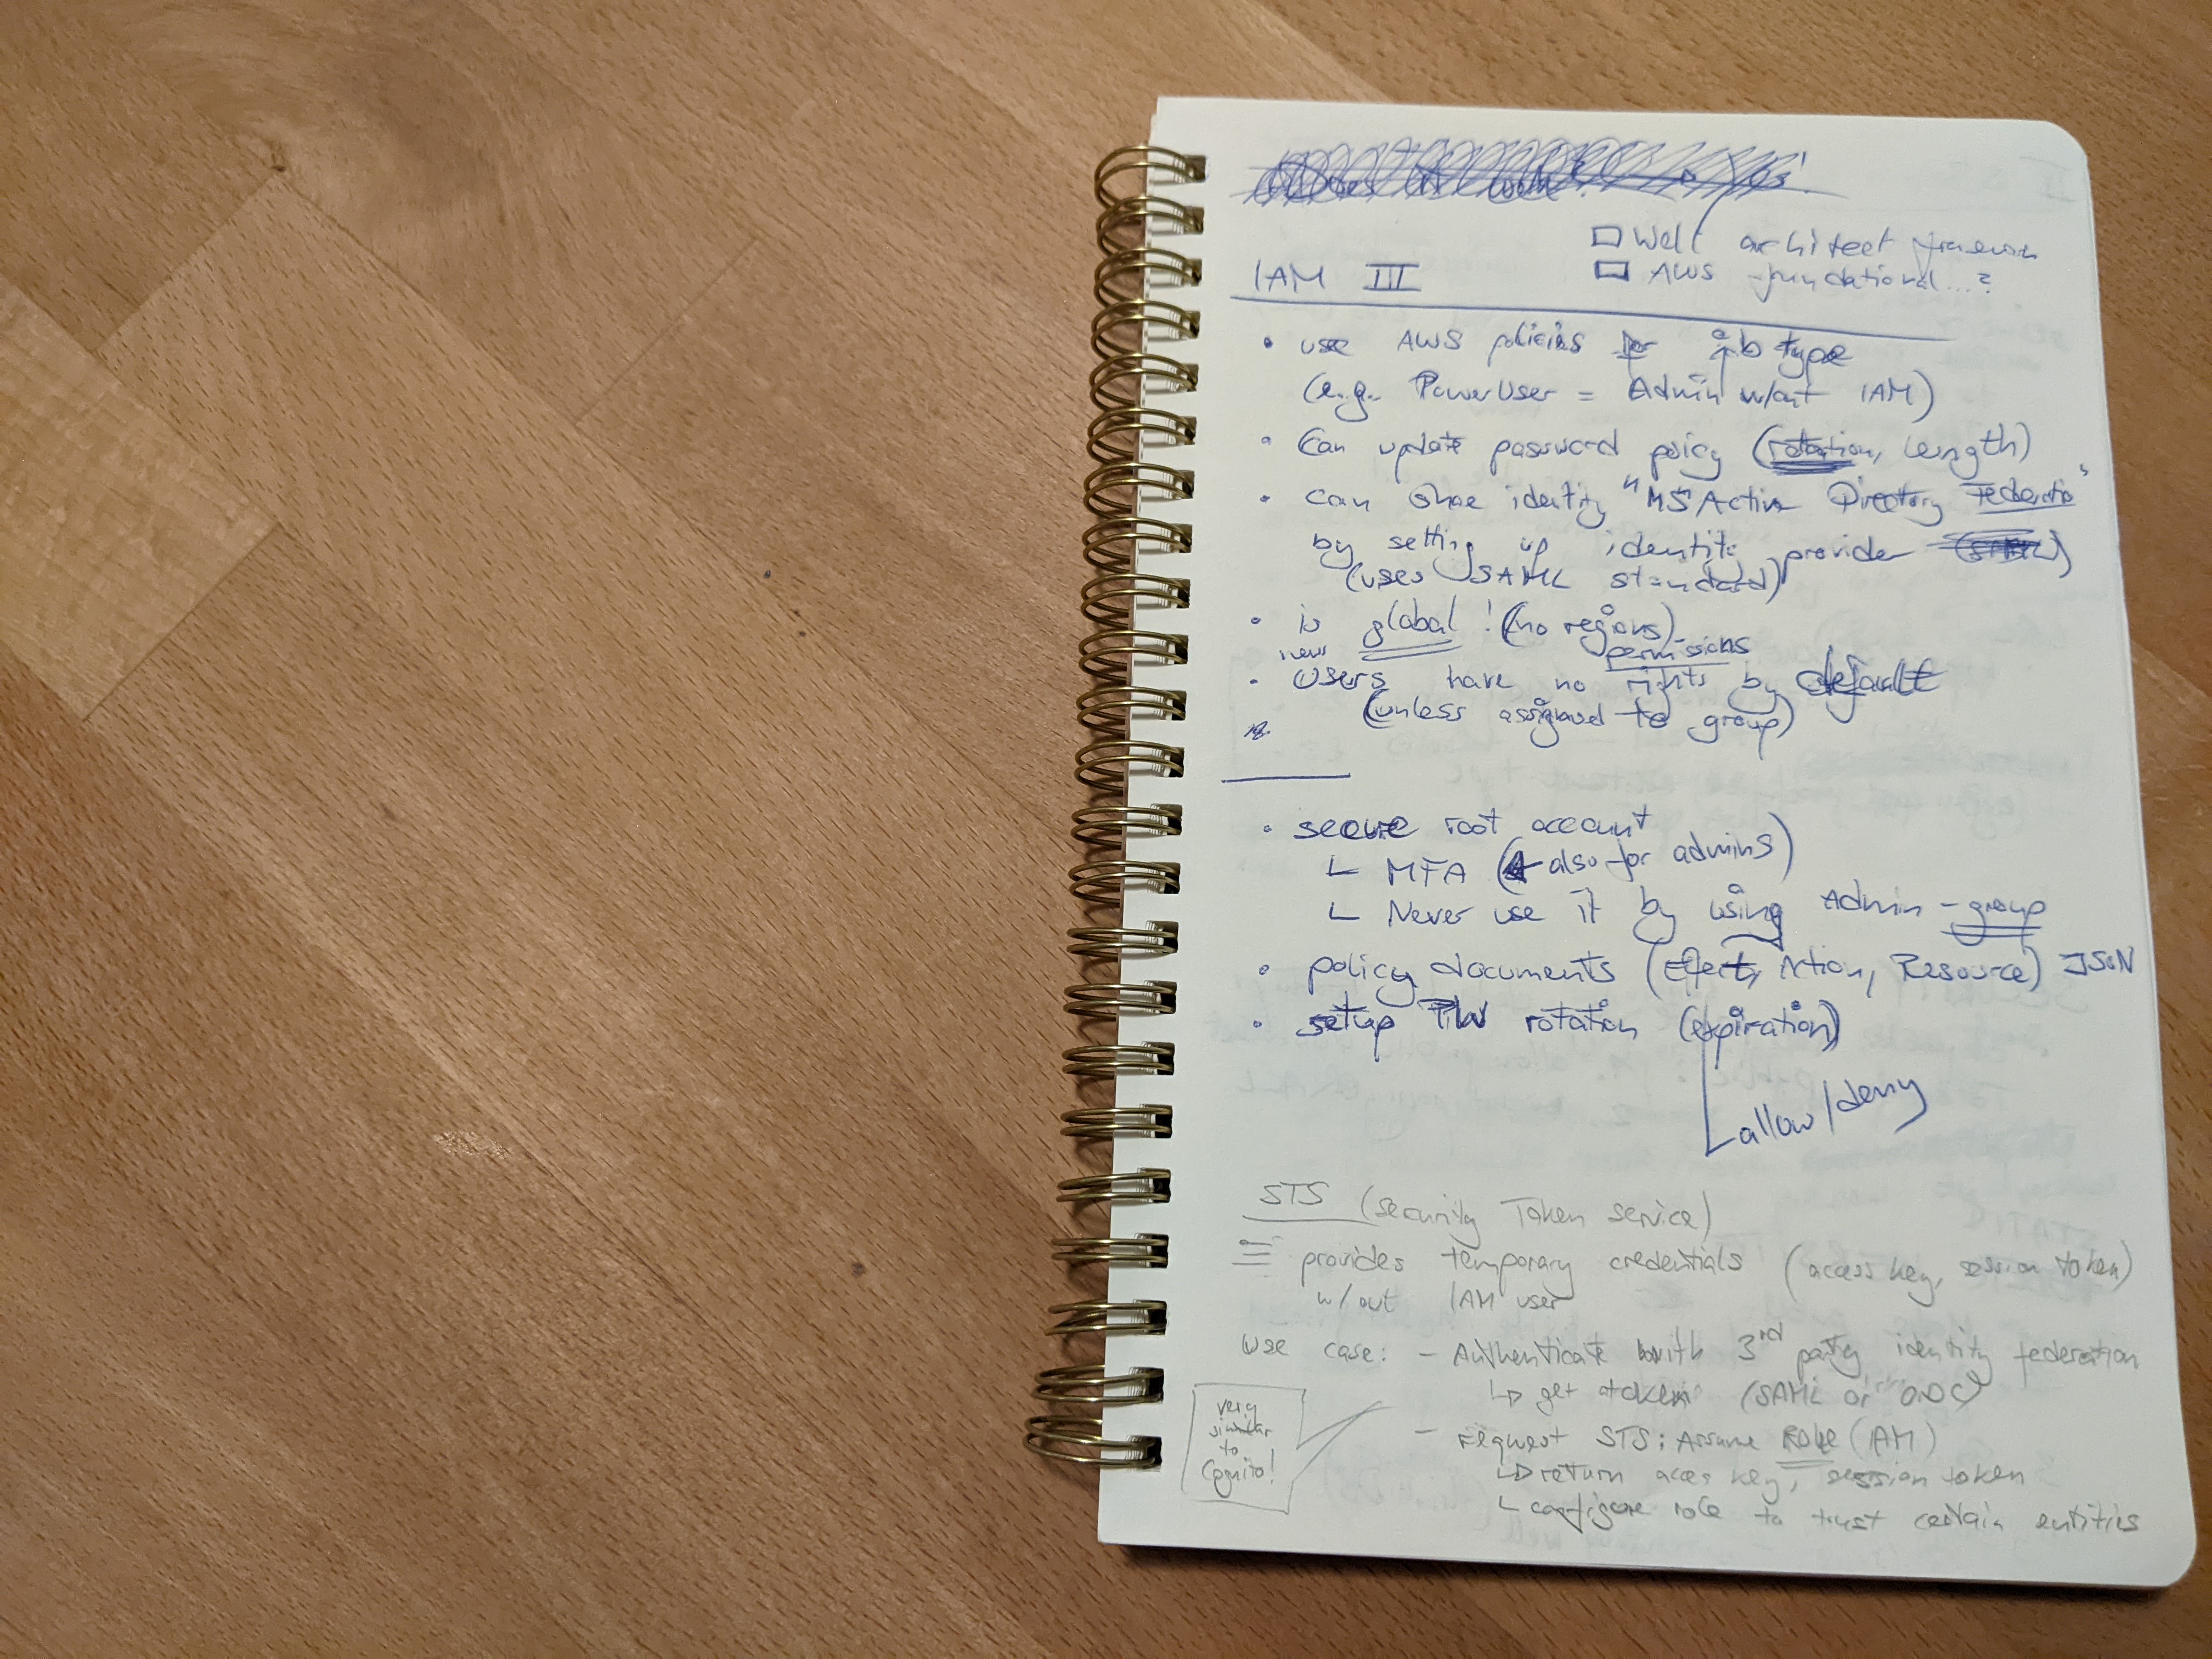 ☐ Well architect framework
IAM III
☐ AWS foundational...?
• use AWS policies for job type
(e.g. PowerUser = Admin w/out IAM)
• Can update password policy (rotation, length)
• can share identity "MS Active Directory Federation"
by setting up identity provider
(uses SAML standard)
• is global! (no regions)
permissions
new
• users have no rights by default
(unless assigned to group)
• secure root account
└ MFA (also for admins)
└ Never use it by using Admin-group
• policy documents (Effect, Action, Resource) JSON
• setup PW rotation (expiration)
allow/deny
STS (security Token service)
= provides temporary credentials (access key, session token)
w/out IAM user
use case: - Authenticate with 3rd party identity federation
↳ get token (SAML or OIDC)
- request STS: Assume Role (IAM)
↳ return acces key, session token
└ configure role to trust certain entities
very
similar
to
Cognito!